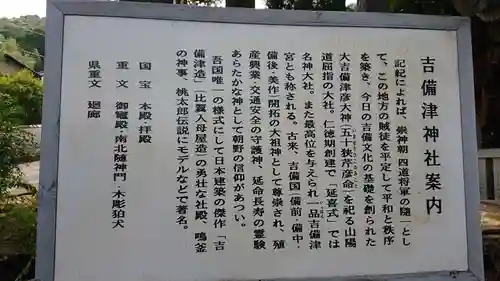 吉備津神社案内
記紀によれば、崇神朝 四道将軍の随一とし
て、この地方の賊徒を平定して平和と秩序
を築き、今日の吉備文化の基礎を創られた
大吉備津彦大神（五十狭芹彦命）を祀る山陽
道屈指の大社、仁徳期創建で「延喜式」では
名神大社。また最高位を与えられ一品吉備津
宮とも称される。古来、吉備国（備前・備中・
備後・美作）開拓の大祖神として尊崇され、殖
産興業・交通安全の守護神、延命長寿の霊験
あらたかな神として朝野の信仰があつい。
吾国唯一の様式にして日本建築の傑作「吉
備津造」（比翼入母屋造）の勇壮な社殿、鳴釜
の神事、桃太郎伝説にモデルなどで著名。
国宝 本殿・拝殿
重文 御竈殿・南北随神門・木彫狛犬
県重文 廻廊